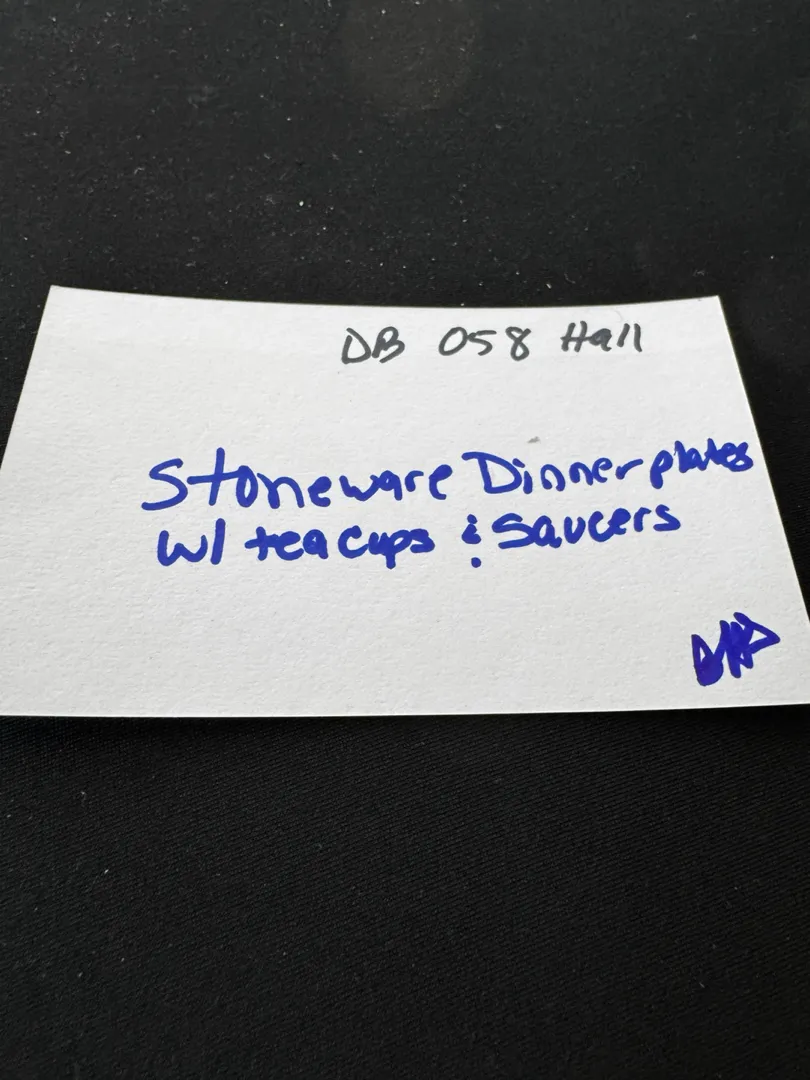 DB 058 Hall
Stoneware Dinner plates
w/ tea cups & Saucers